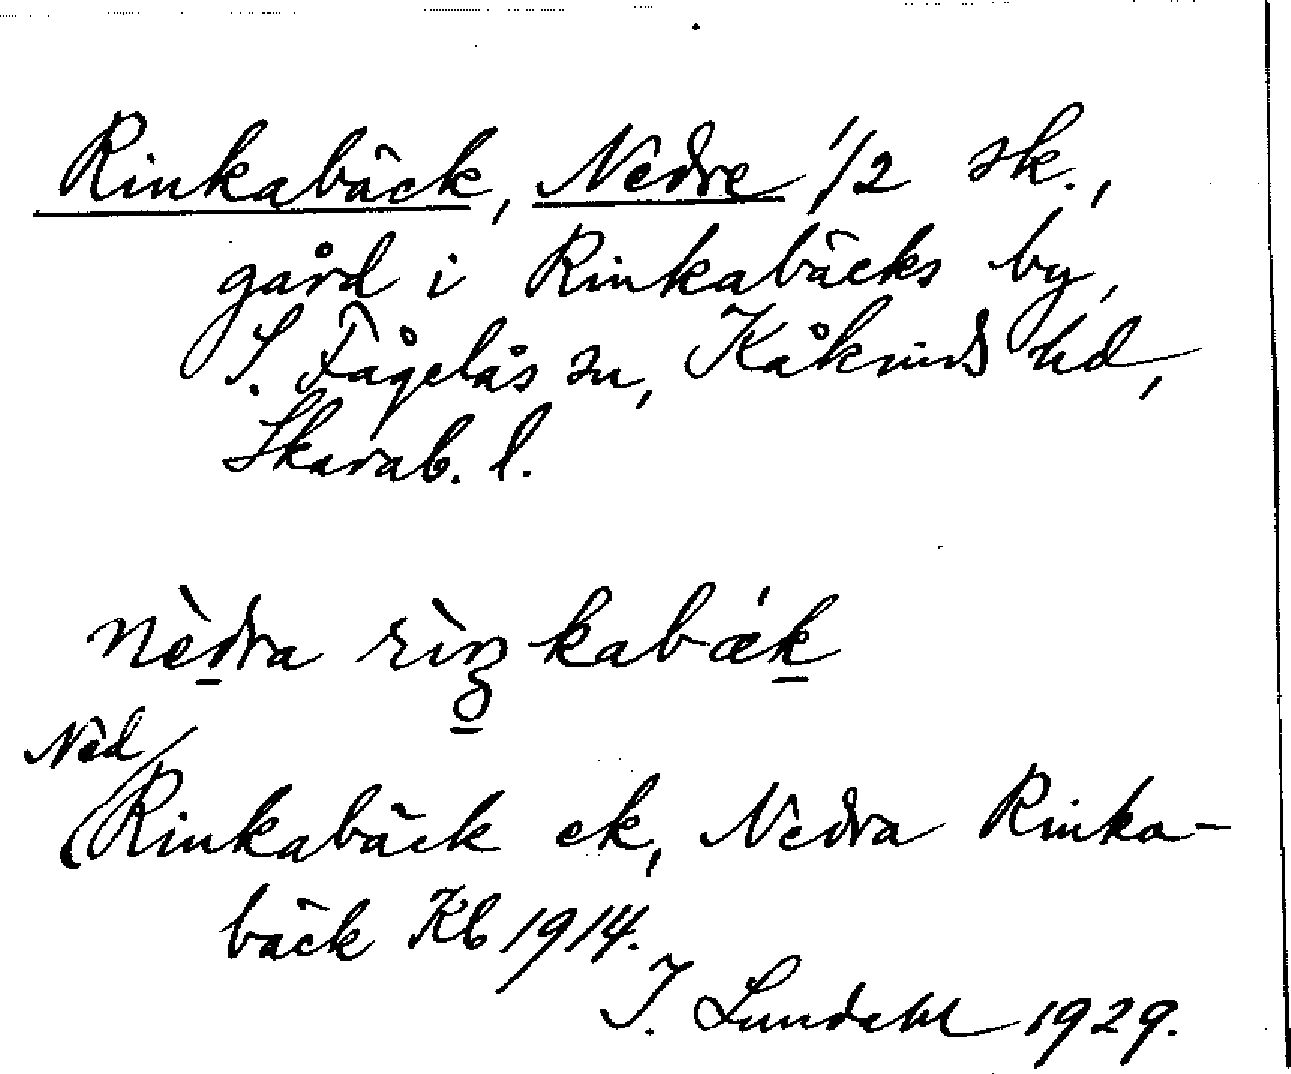 Rinkabäck, Nedre 1/2 sk.,
gård i Rinkabäcks by,
S. Fågelås sn, Kåkinds hd,
Skarab. l.
nèdra rìŋkabák
Ned
Rinkabäck ek, Nedra Rinka-
bäck Kb 1914.
I. Lundahl 1929.